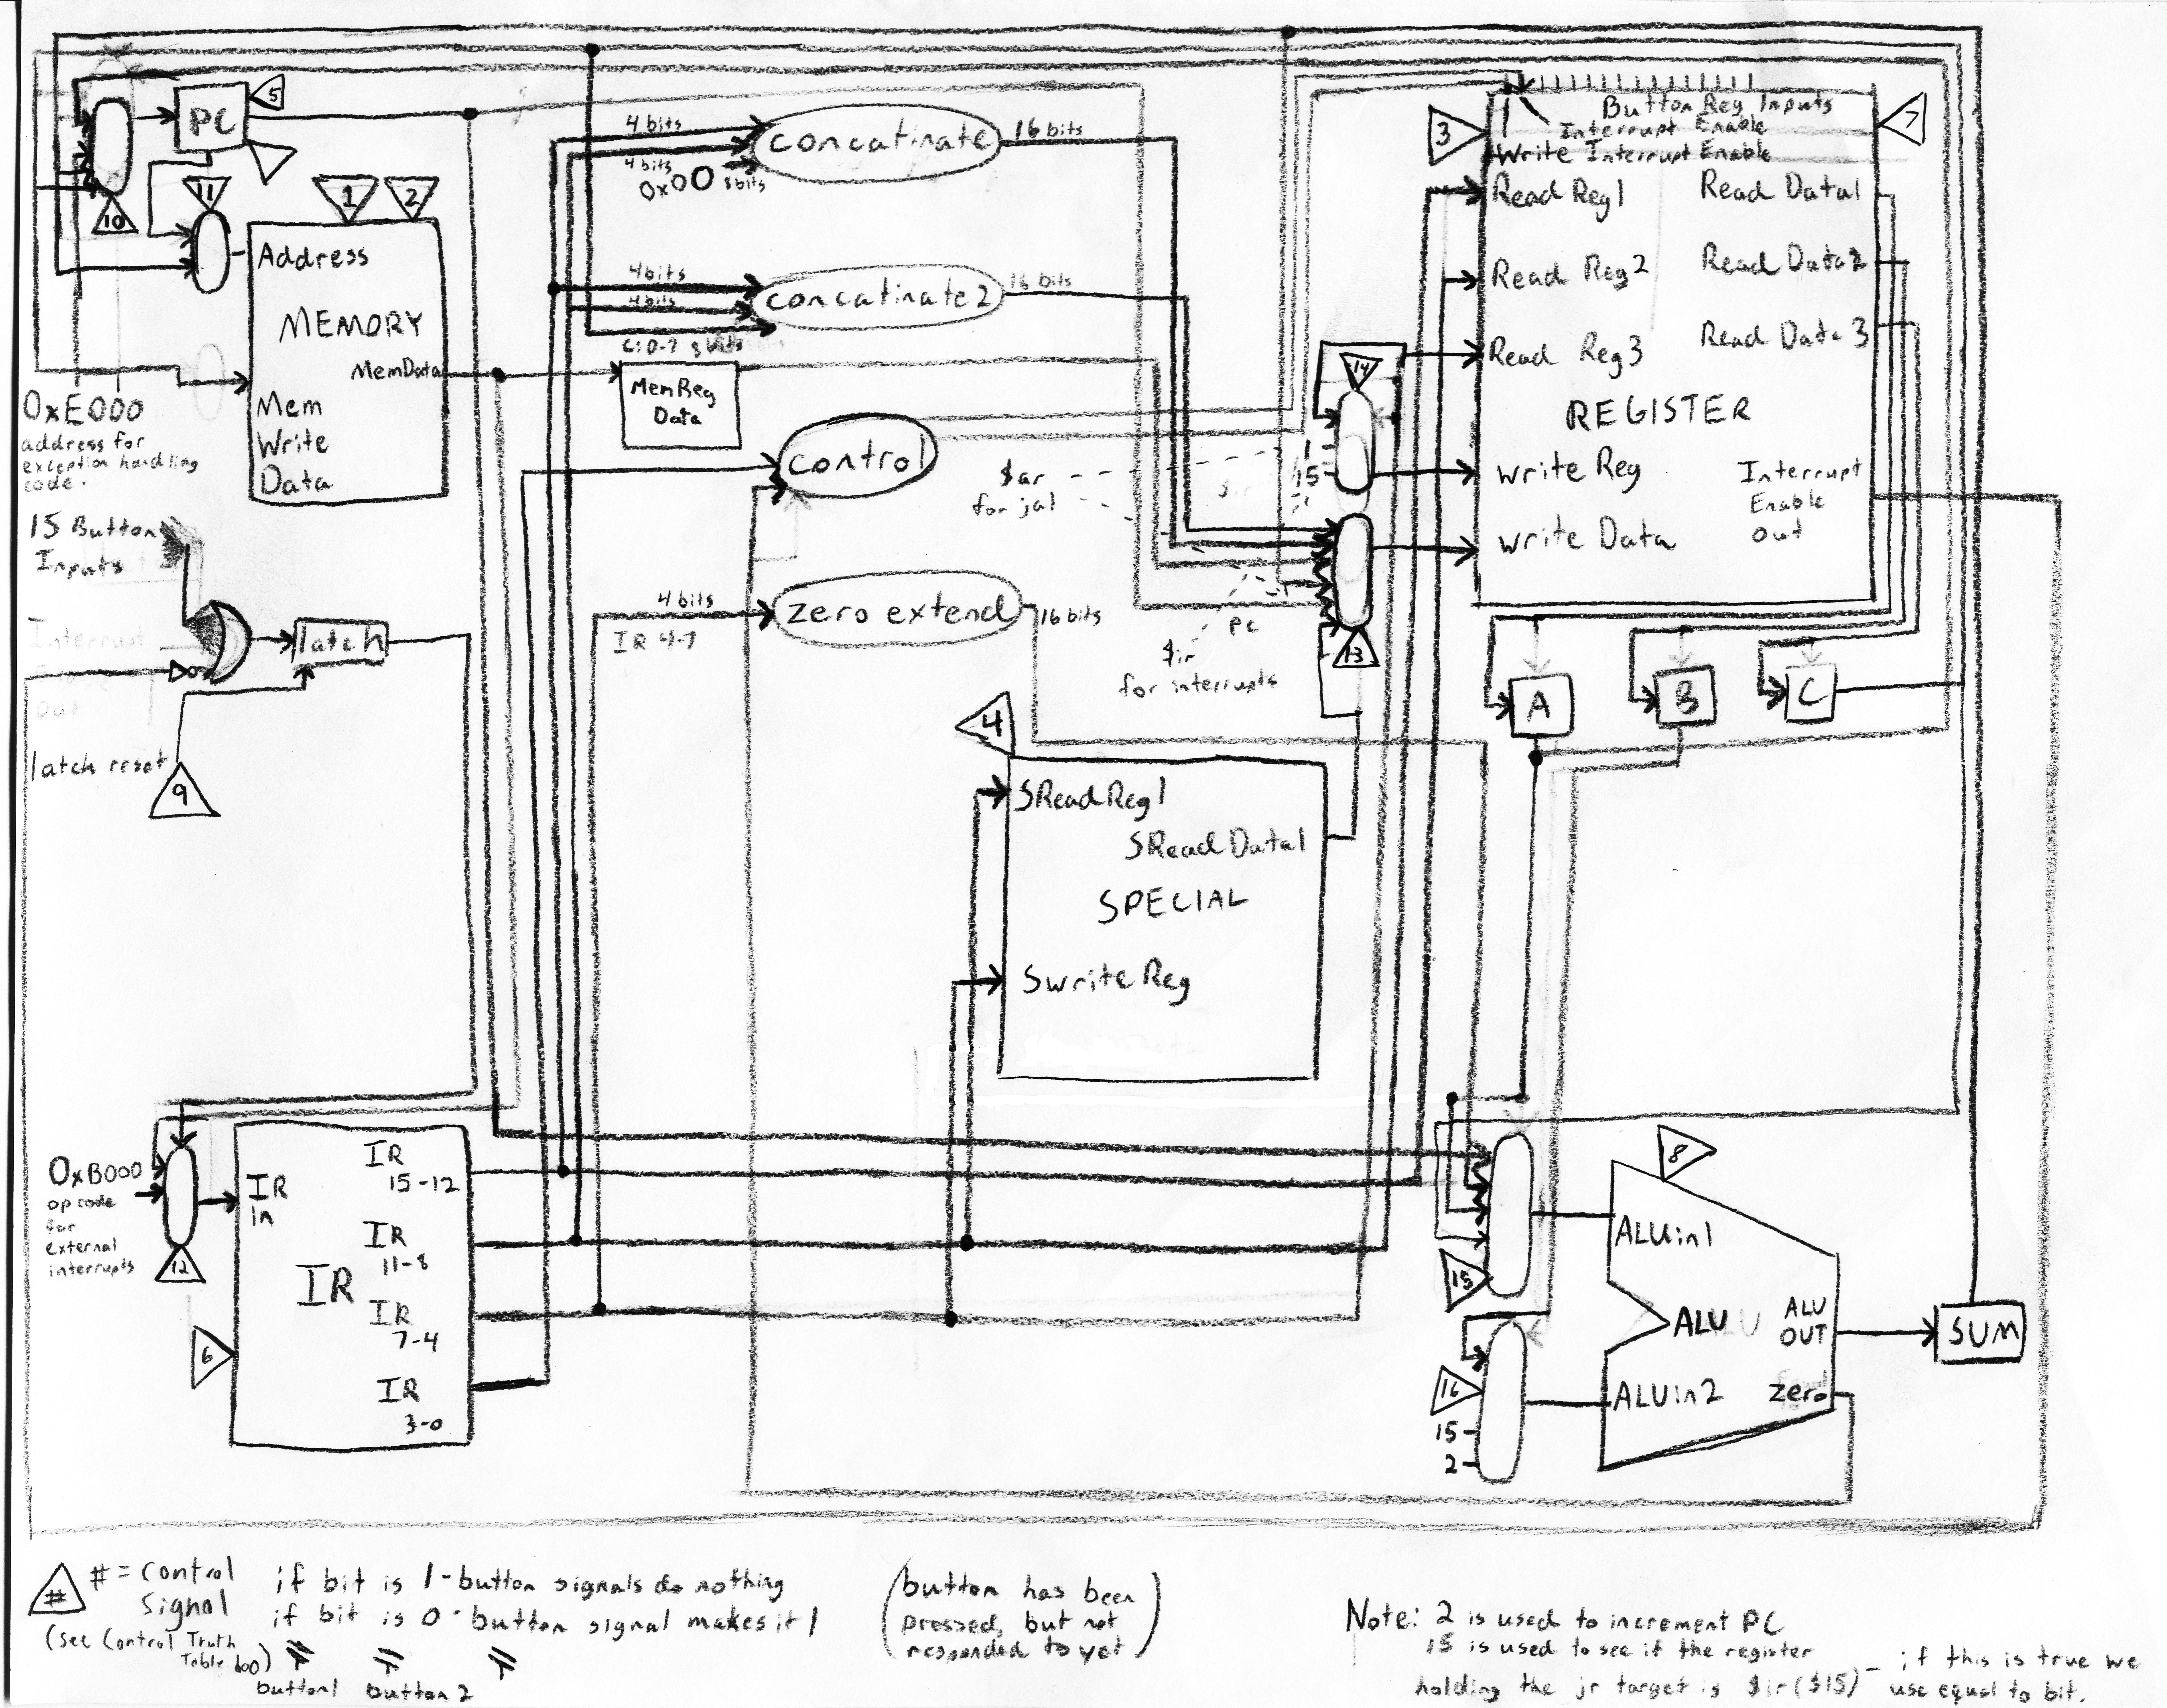 PC
5
10
11
1
2
Address
MEMORY
MemData
Mem
Write
Data
0xE000
address for
exception handling
code.
15 Button
Inputs
Interrupt
Out
latch
latch reset
9
4 bits
4 bits
0x00 8bits
concatinate
16 bits
4bits
4bits
C:0-7 8bits
concatinate2
16 bits
MemReg
Data
control
4 bits
IR 4-7
zero extend
16 bits
$ar
for jal
1
15
14
PC
$ir
for interrupts
13
3
7
Button Reg Inputs
Interrupt Enable
Write Interrupt Enable
Read Reg1
Read Data1
Read Reg2
Read Data2
Read Reg3
Read Data3
REGISTER
Write Reg
Interrupt
Enable
Out
Write Data
A
B
C
4
SReadReg1
SReadData1
SPECIAL
SwriteReg
0xB000
op code
for
external
interrupts
12
6
IR
In
IR
IR
15-12
IR
11-8
IR
7-4
IR
3-0
15
16
15
2
8
ALUin1
ALU
ALU
OUT
ALUin2
zero
SUM
# # = Control
Signal
(See Control Truth
Table too)
if bit is 1 - button signals do nothing
if bit is 0 - button signal makes it 1
button1 button 2
(button has been
pressed, but not
responded to yet)
Note: 2 is used to increment PC
15 is used to see if the register
holding the jr target is $ir($15) - if this is true we
use equal to bit.